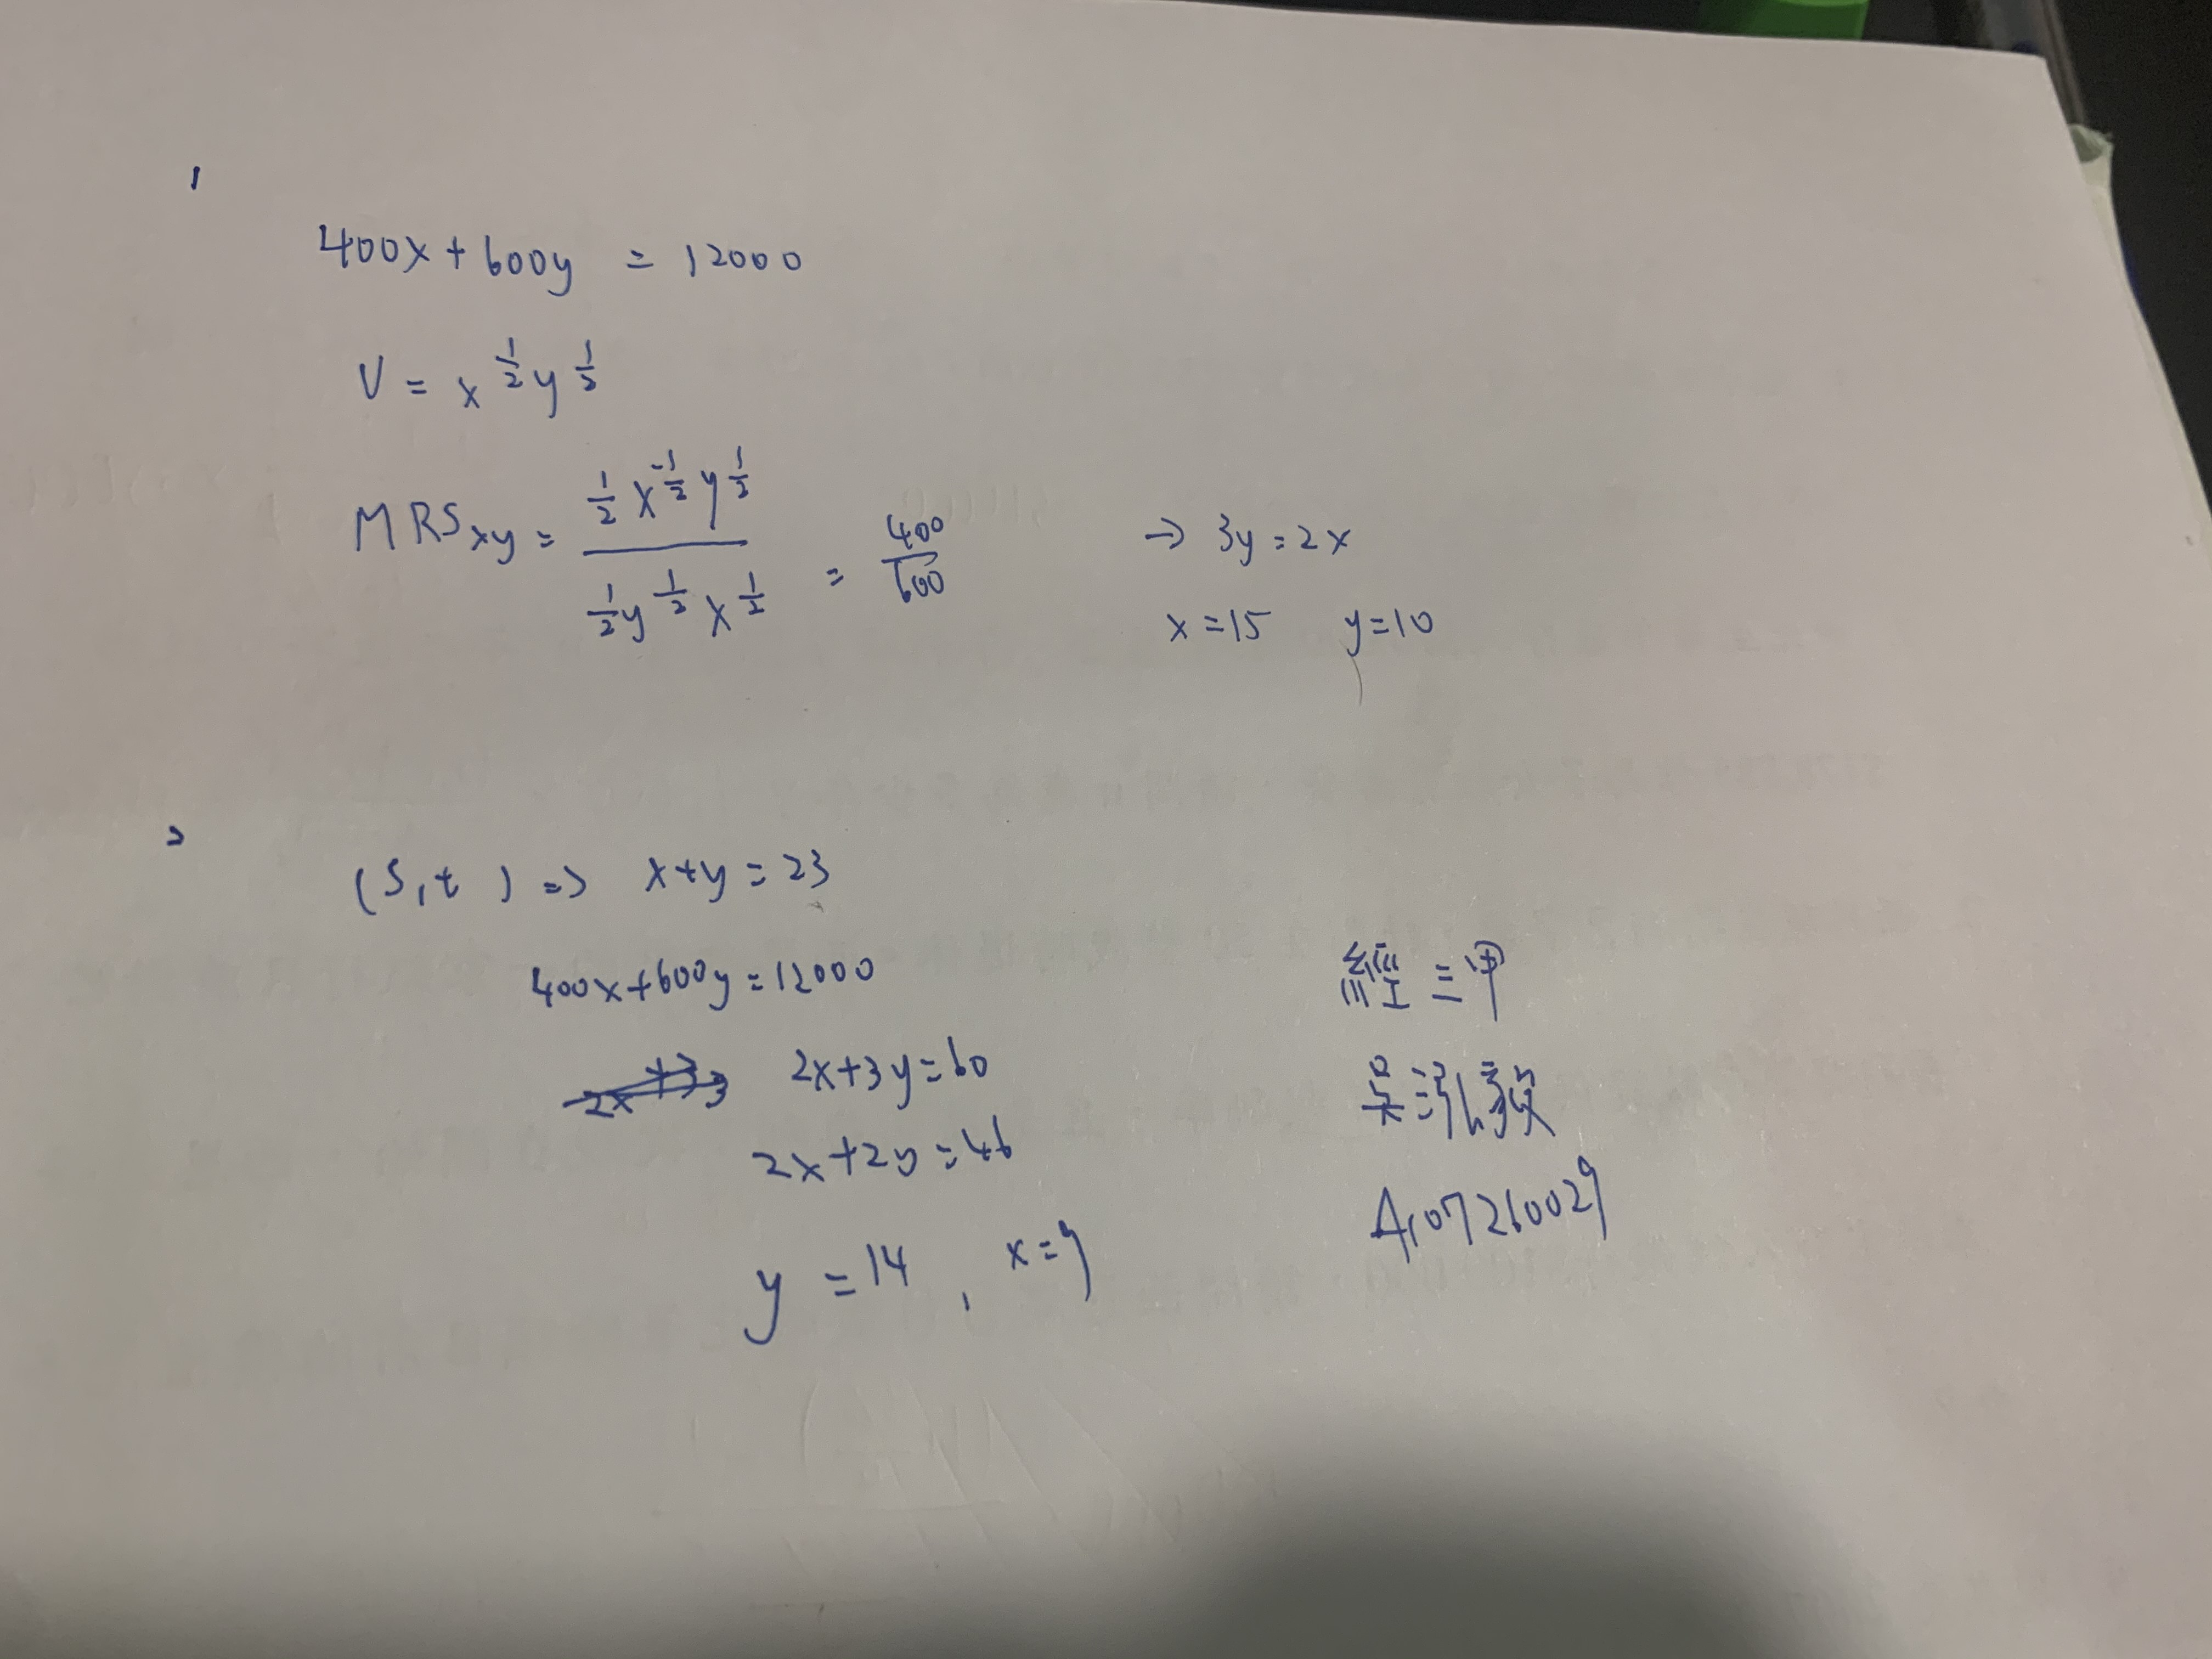 1
400x + 600y = 12000
U = x^{1/2} y^{1/2}
MRSxy = \frac{\frac{1}{2} x^{-\frac{1}{2}} y^{\frac{1}{2}}}{\frac{1}{2} y^{\frac{1}{2}} x^{\frac{1}{2}}} = \frac{400}{600} → 3y = 2x
x = 15 y = 10
2
(s,t) => x + y = 23
400x + 600y = 12000
2x + 3y = 60
2x + 2y = 46
y = 14, x = 9
經二甲
A107260029